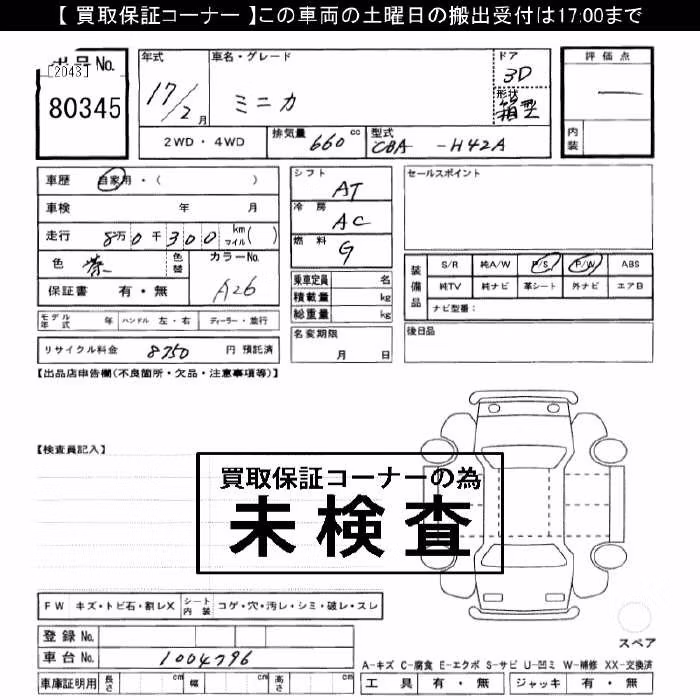 【 買取保証コーナー 】この車両の土曜日の搬出受付は17:00まで
出品No.
[2043]
80345
年式 車名・グレード ドア 評価点
17/2月 ミニカ 3D
形状 箱型
2WD・4WD 排気量 660 cc 型式 CBA -H42A 内装
車歴 自家用・( )
車検 年 月
走行 8万0千300 km マイル( )
色 茶 色替 カラーNo. A26
保証書 有・無
モデル年式 年 ハンドル 左・右 ディーラー・並行
リサイクル料金 8750 円 預託済
シフト AT
冷房 AC
燃料 G
乗車定員 名
積載量 kg
総重量 kg
名変期限 月 日
セールスポイント
装備品 S/R 純A/W P/S P/W ABS
純TV 純ナビ 革シート 外ナビ エアB
ナビ型番:
後日品
【出品店申告欄(不良箇所・欠品・注意事項等)】
【検査員記入】
買取保証コーナーの為
未検査
FW キズ・トビ石・割レX シート内装 コゲ・穴・汚レ・シミ・破レ・スレ
登録No.
車台No. 1004796
車庫証明用 長さ cm 幅 cm 高さ cm
スペア
A-キズ C-腐食 E-エクボ S-サビ U-凹ミ W-補修 XX-交換済
工具 有・無 ジャッキ 有・無